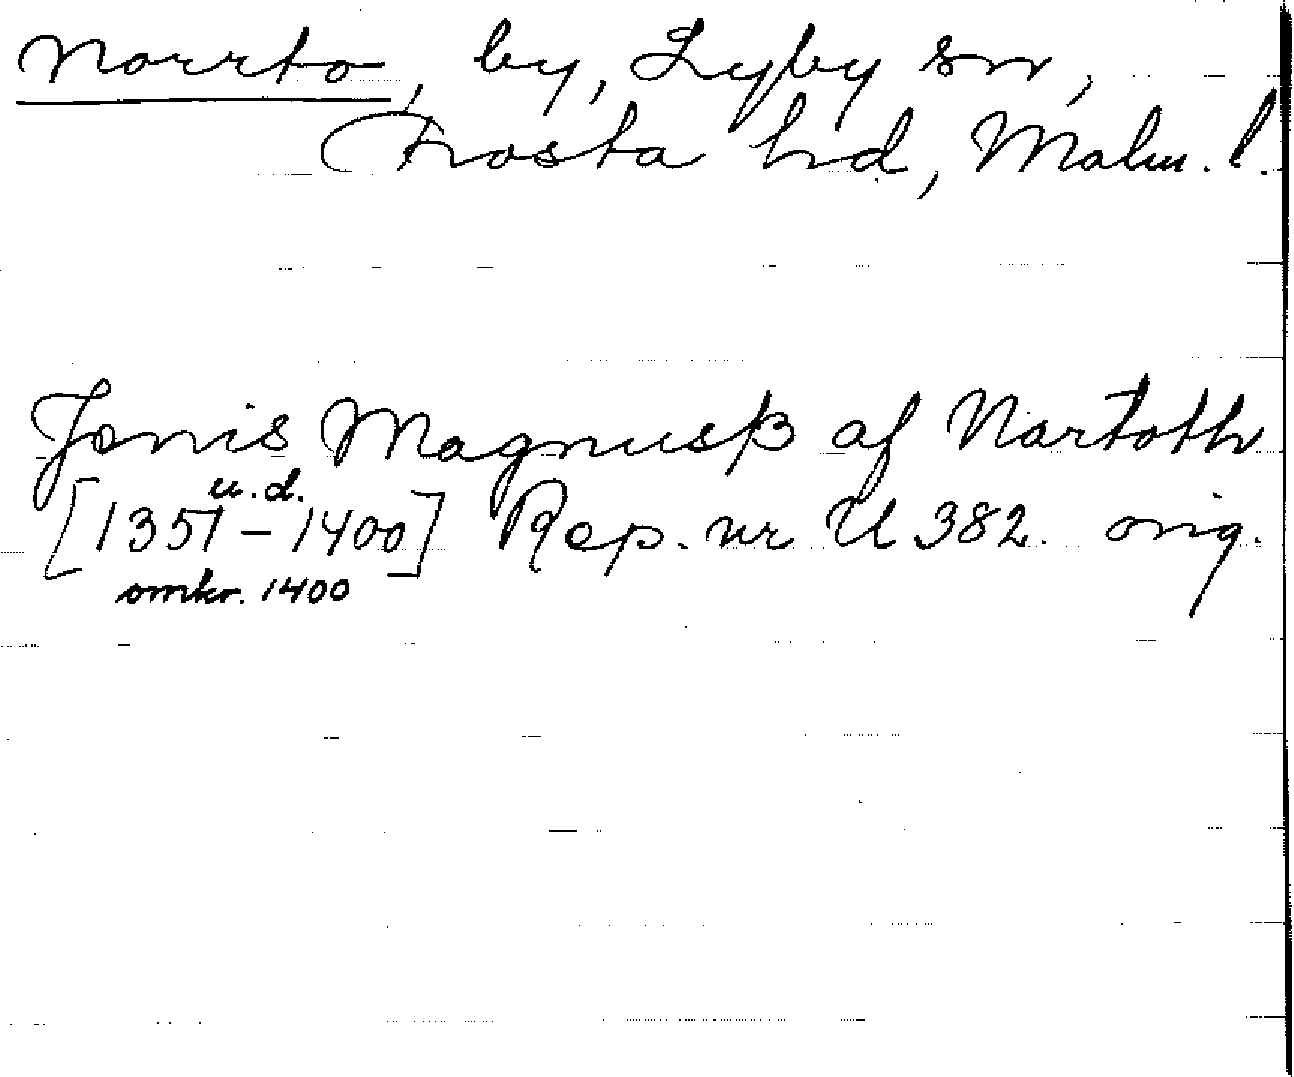 Norrto, by, Lyby sn,
Frosta hd, Malm. l.
Jonis Magnusß af Nartoth
u. d.
[1351-1400] Rep. nr U 382. orig.
omkr. 1400